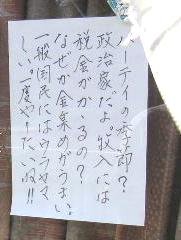 パーティの季節?
政治家だよ。収入には
税金がかゝるの?
なぜか金集めがうまい。
一般国民にはウラヤマ
しい。一度やりたいね!!